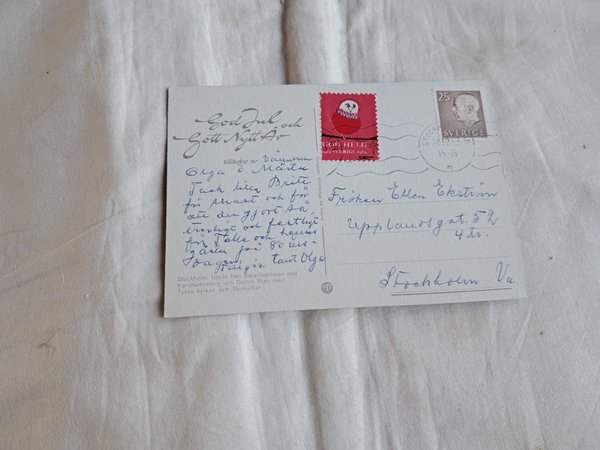 God Jul och
Gott Nytt År
tillönskar av
Olga o Märta
Tack lilla Brite
för och för
att du gjort så
trevligt och festligt
för och hennes
för 80 års-
dagen. tant Olga
Stockholm. Utsikt från Katarinahissen mot
Kornhamnstorg och Gamla Stan med
Tyska kyrkan och Storkyrkan
GOD HELG
SVERIGE
25
SVERIGE
Fröken Ellen Ekström
Upplandsgat. 52
4 tr.
Stockholm Va